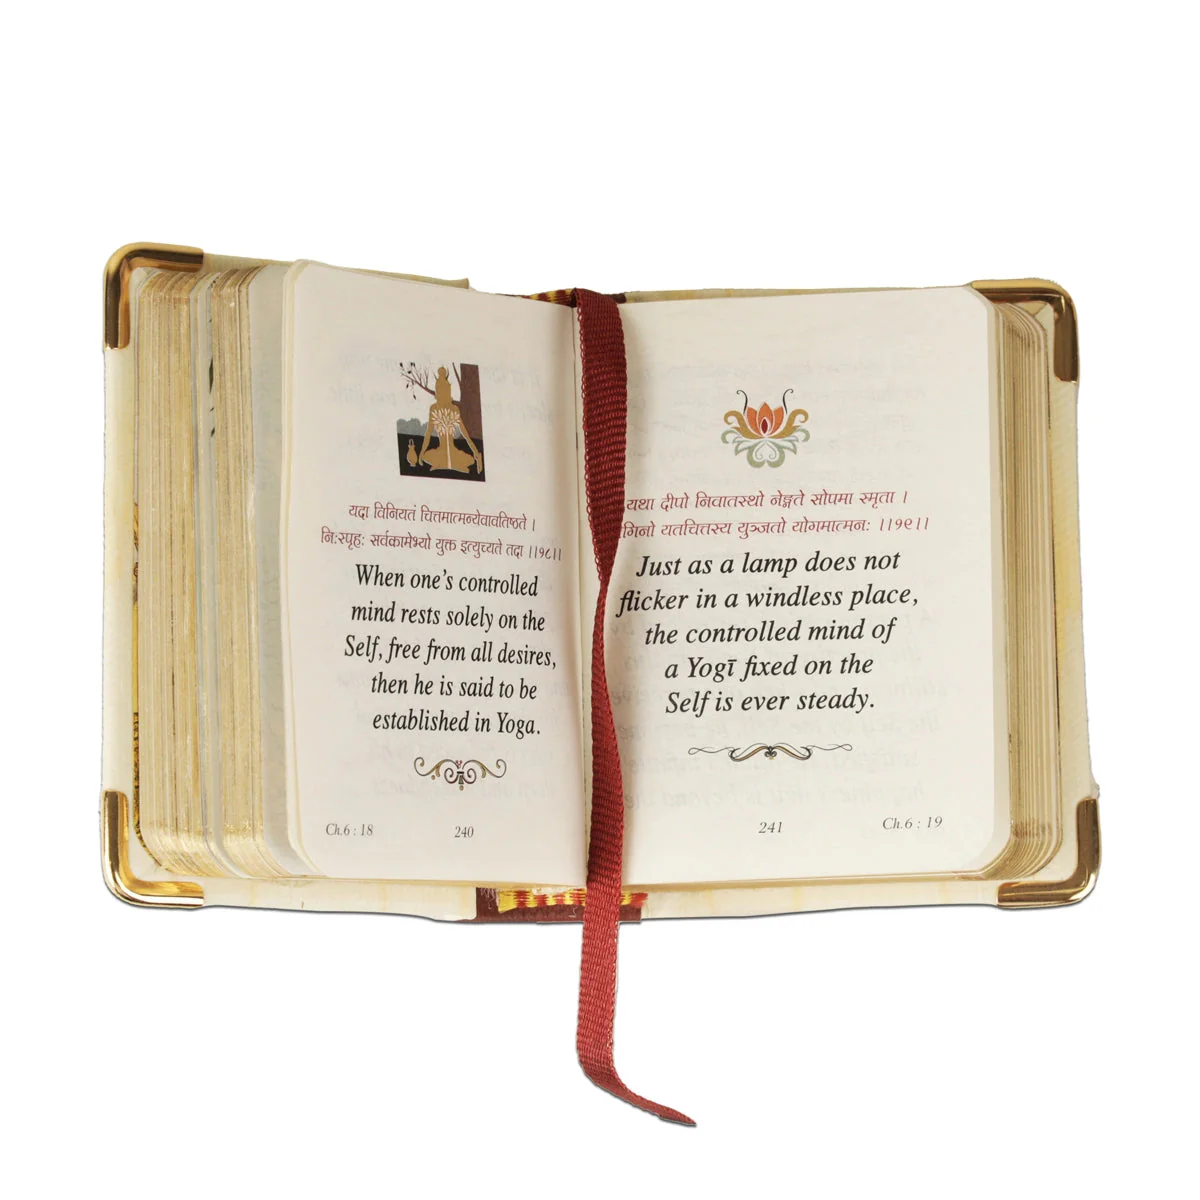 यदा विनियतं चित्तमात्मन्येवावतिष्ठते ।
निःस्पृहः सर्वकामेभ्यो युक्त इत्युच्यते तदा ।।१८।।
When one's controlled
mind rests solely on the
Self, free from all desires,
then he is said to be
established in Yoga.
Ch.6 : 18
240
यथा दीपो निवातस्थो नेङ्गते सोपमा स्मृता ।
गिनो यतचित्तस्य युञ्जतो योगमात्मनः ।।१९।।
Just as a lamp does not
flicker in a windless place,
the controlled mind of
a Yogī fixed on the
Self is ever steady.
241
Ch.6 : 19